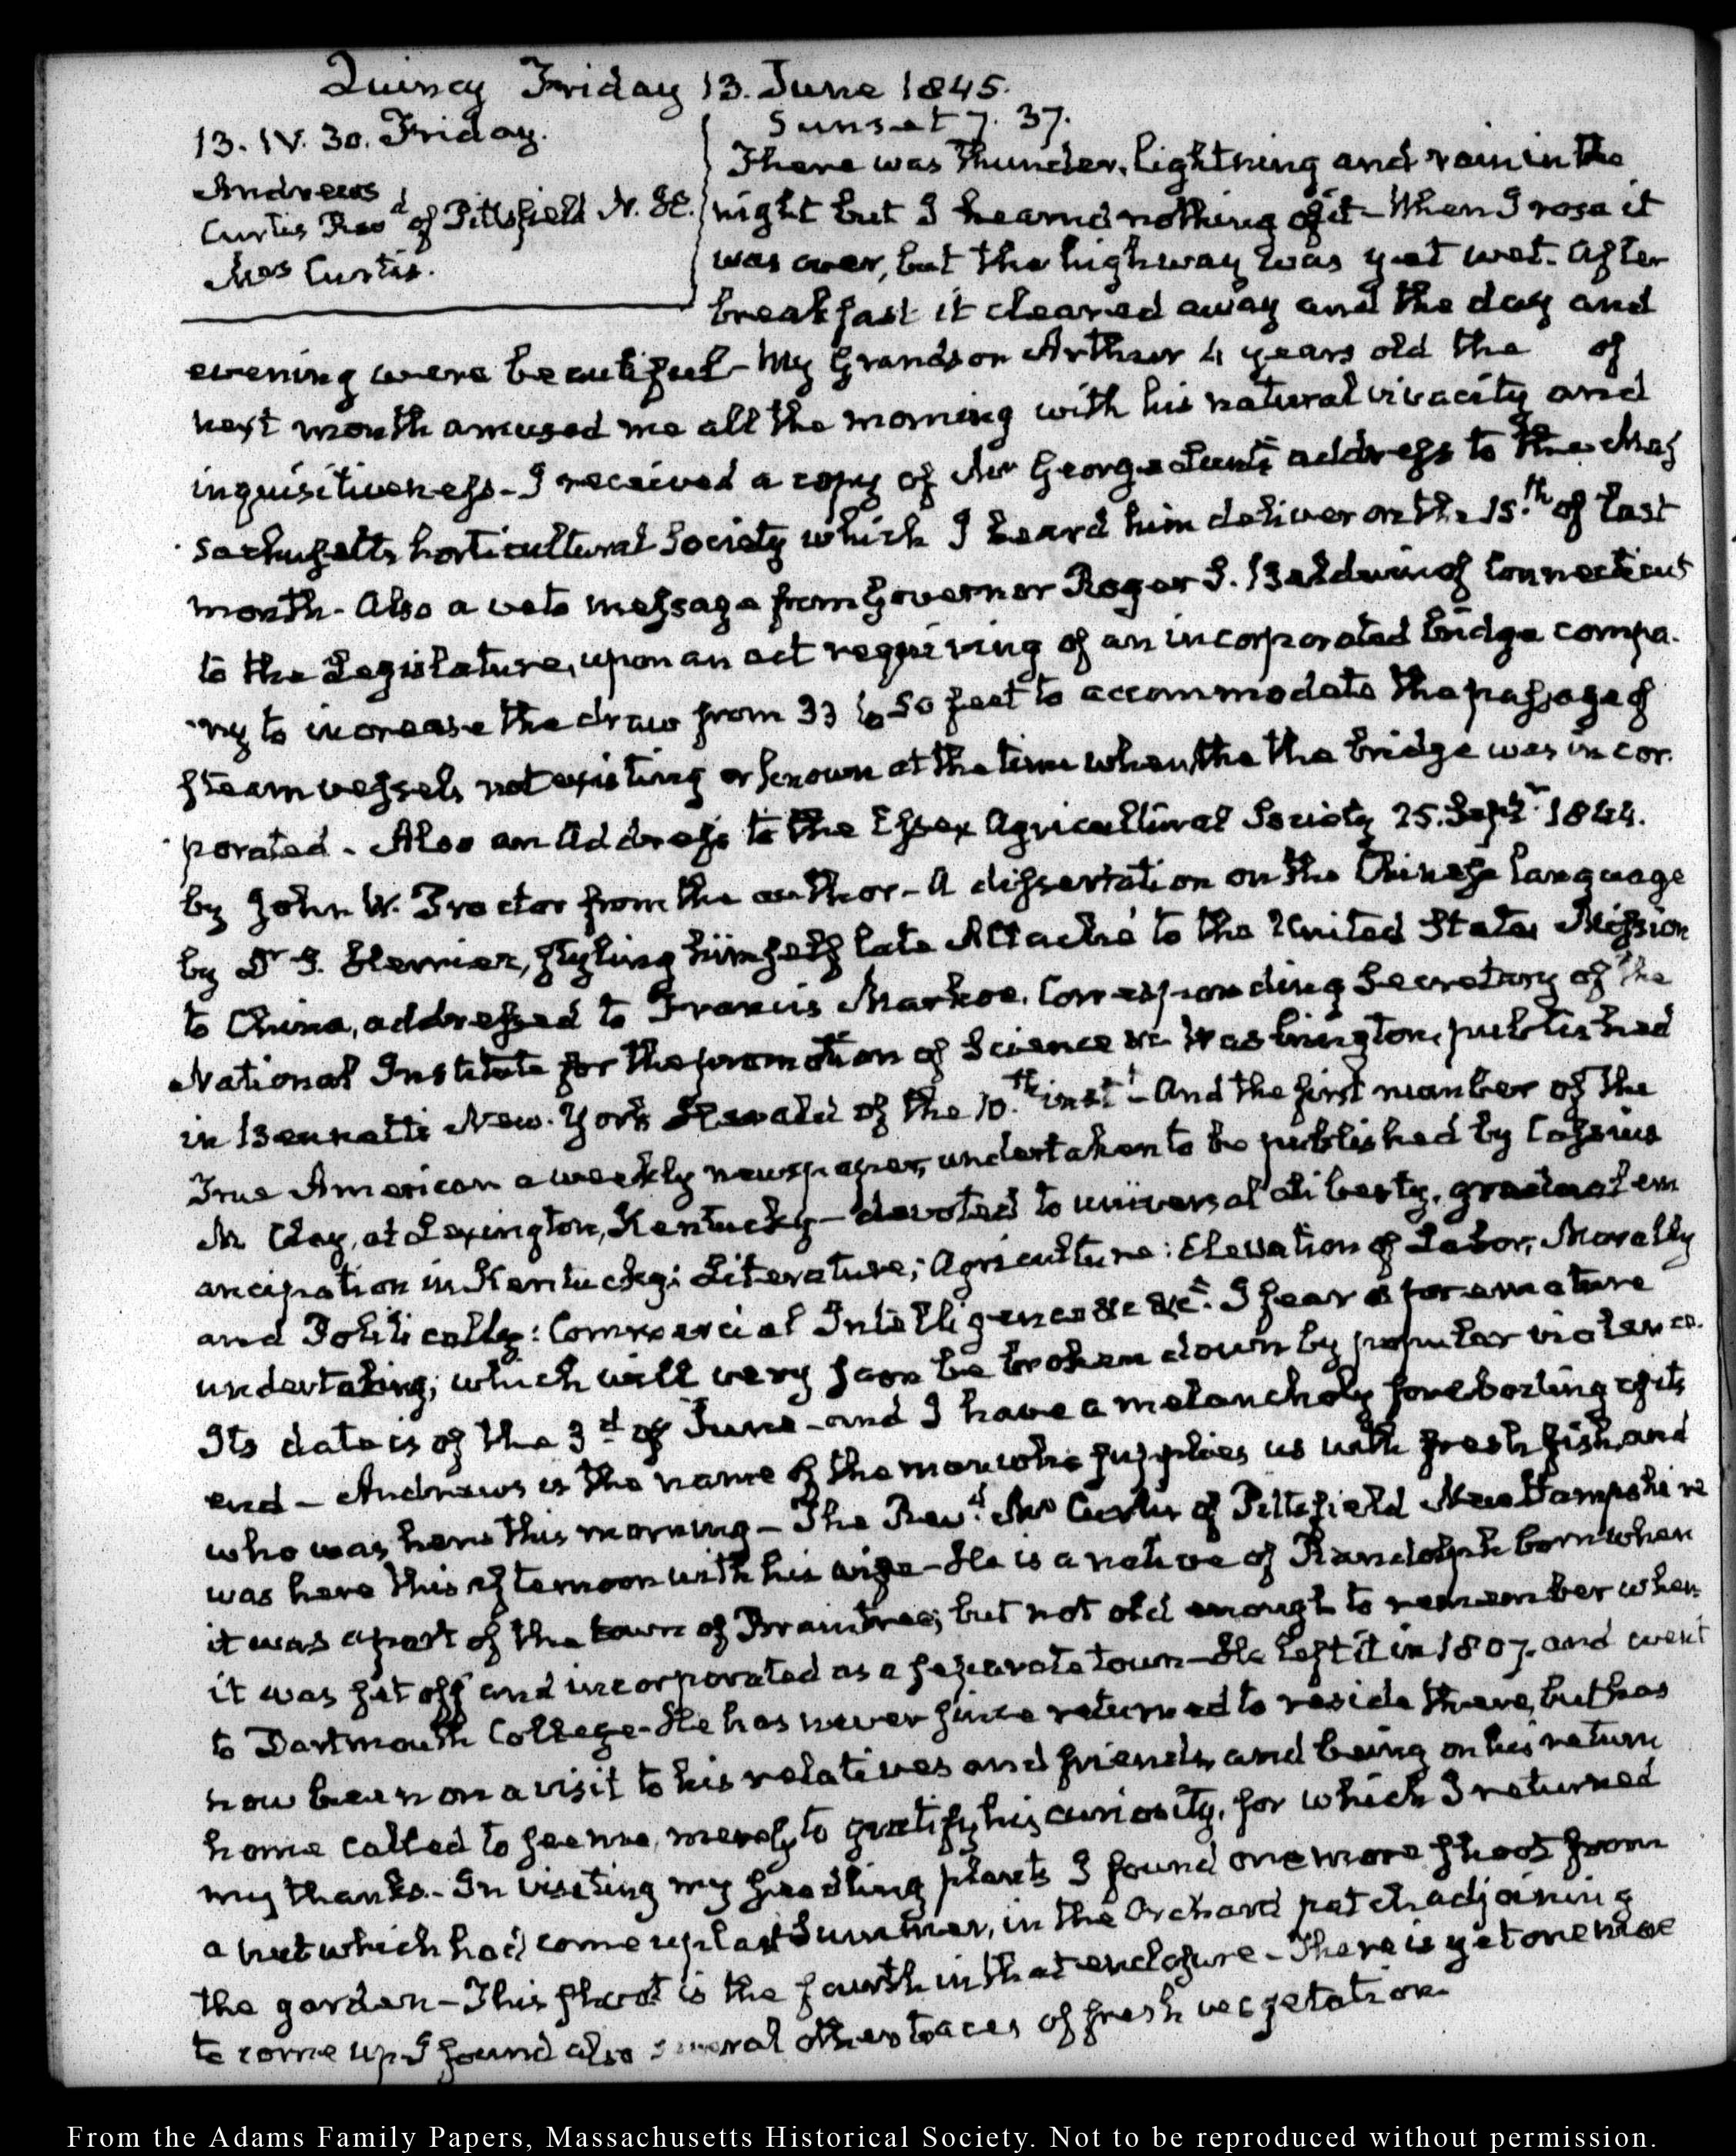 Quincy Friday 13. June 1845.
13. IV. 30. Friday.
Andrews
Curtis Revd of Pittsfield N. H.
Mrs Curtis.
Sunset 7. 37.
There was Thunder, lightning and rain in the
night but I heard nothing of it – When I rose it
was over, but the highway was yet wet. After
breakfast it cleared away and the day and
evening were beautiful – My Grandson Arthur 4 years old the of
next month amused me all the morning with his natural vivacity and
inquisitiveness – I received a copy of Mr George Lunt's address to the Mas
sachusetts horticultural Society which I heard him deliver on the 15.th of last
month – Also a veto message from Governor Roger S. Baldwin of Connecticut
to the Legislature, upon an act requiring of an incorporated bridge compa-
-ny to increase the draw from 33 to 50 feet to accommodate the passage of
steam vessels not existing or known at the time when the the bridge was incor-
porated – Also an Address to the Essex Agricultural Society 25. Septr 1844.
by John W. Proctor from the author – A dissertation on the Chinese language
by Dr S. , styling himself late Attaché to the United States Mission
to China, addressed to Francis Markoe, Corresponding Secretary of the
National Institute for the promotion of Science Washington, published
in Bennett's New-York Herald of the 10.th inst – And the first number of the
True American a weekly newspaper, undertaken to be published by Cassius
M Clay, at Lexington, Kentucky – devoted to universal liberty, gradual em
ancipation in Kentucky; Literature; Agriculture: Elevation of Labor, Morally
and Politically: Commercial Intelligence &c &c. I fear a premature
undertaking; which will very soon be broken down by popular violence.
Its date is of the 3d of June – and I have a melancholy foreboding of its
end – Andrews is the name of the man who supplies us with fresh fish, and
who was here this morning – The Revd Mr Curtis of Pittsfield New Hampshire
was here this afternoon with his wife – He is a native of Randolph born when
it was a part of the town of Braintree; but not old enough to remember when
it was set off and incorporated as a separate town – He left it in 1807. and went
to Dartmouth College – He has never since returned to reside there, but has
now been on a visit to his relatives and friends, and being on his return
home called to see me, merely to gratify his curiosity, for which I returned
my thanks. – In visiting my seedling plants I found one more shoot from
a nut which had come up last Summer, in the Orchard patch adjoining
the garden – This shoot is the fourth in that enclosure – There is yet one more
to come up I found also several other traces of fresh vegetation.
From the Adams Family Papers, Massachusetts Historical Society. Not to be reproduced without permission.